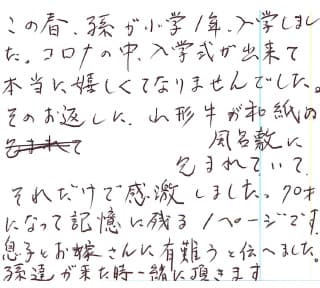 この春、孫が小学1年、入学しまし
た。コロナの中、入学式が出来て
本当に嬉しくてなりませんでした。
そのお返しに、山形牛が和紙の
風呂敷に
包まれていて、
それだけで感激しました。70才
になって記憶に残る1ページです。
息子とお嫁さんに有難うと伝へました。
孫達が来た時一緒に頂きます